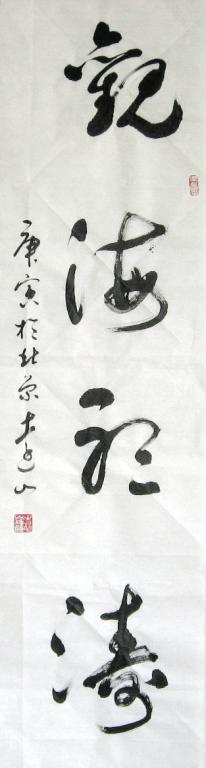 觀海聽濤
庚寅於北京大迅山